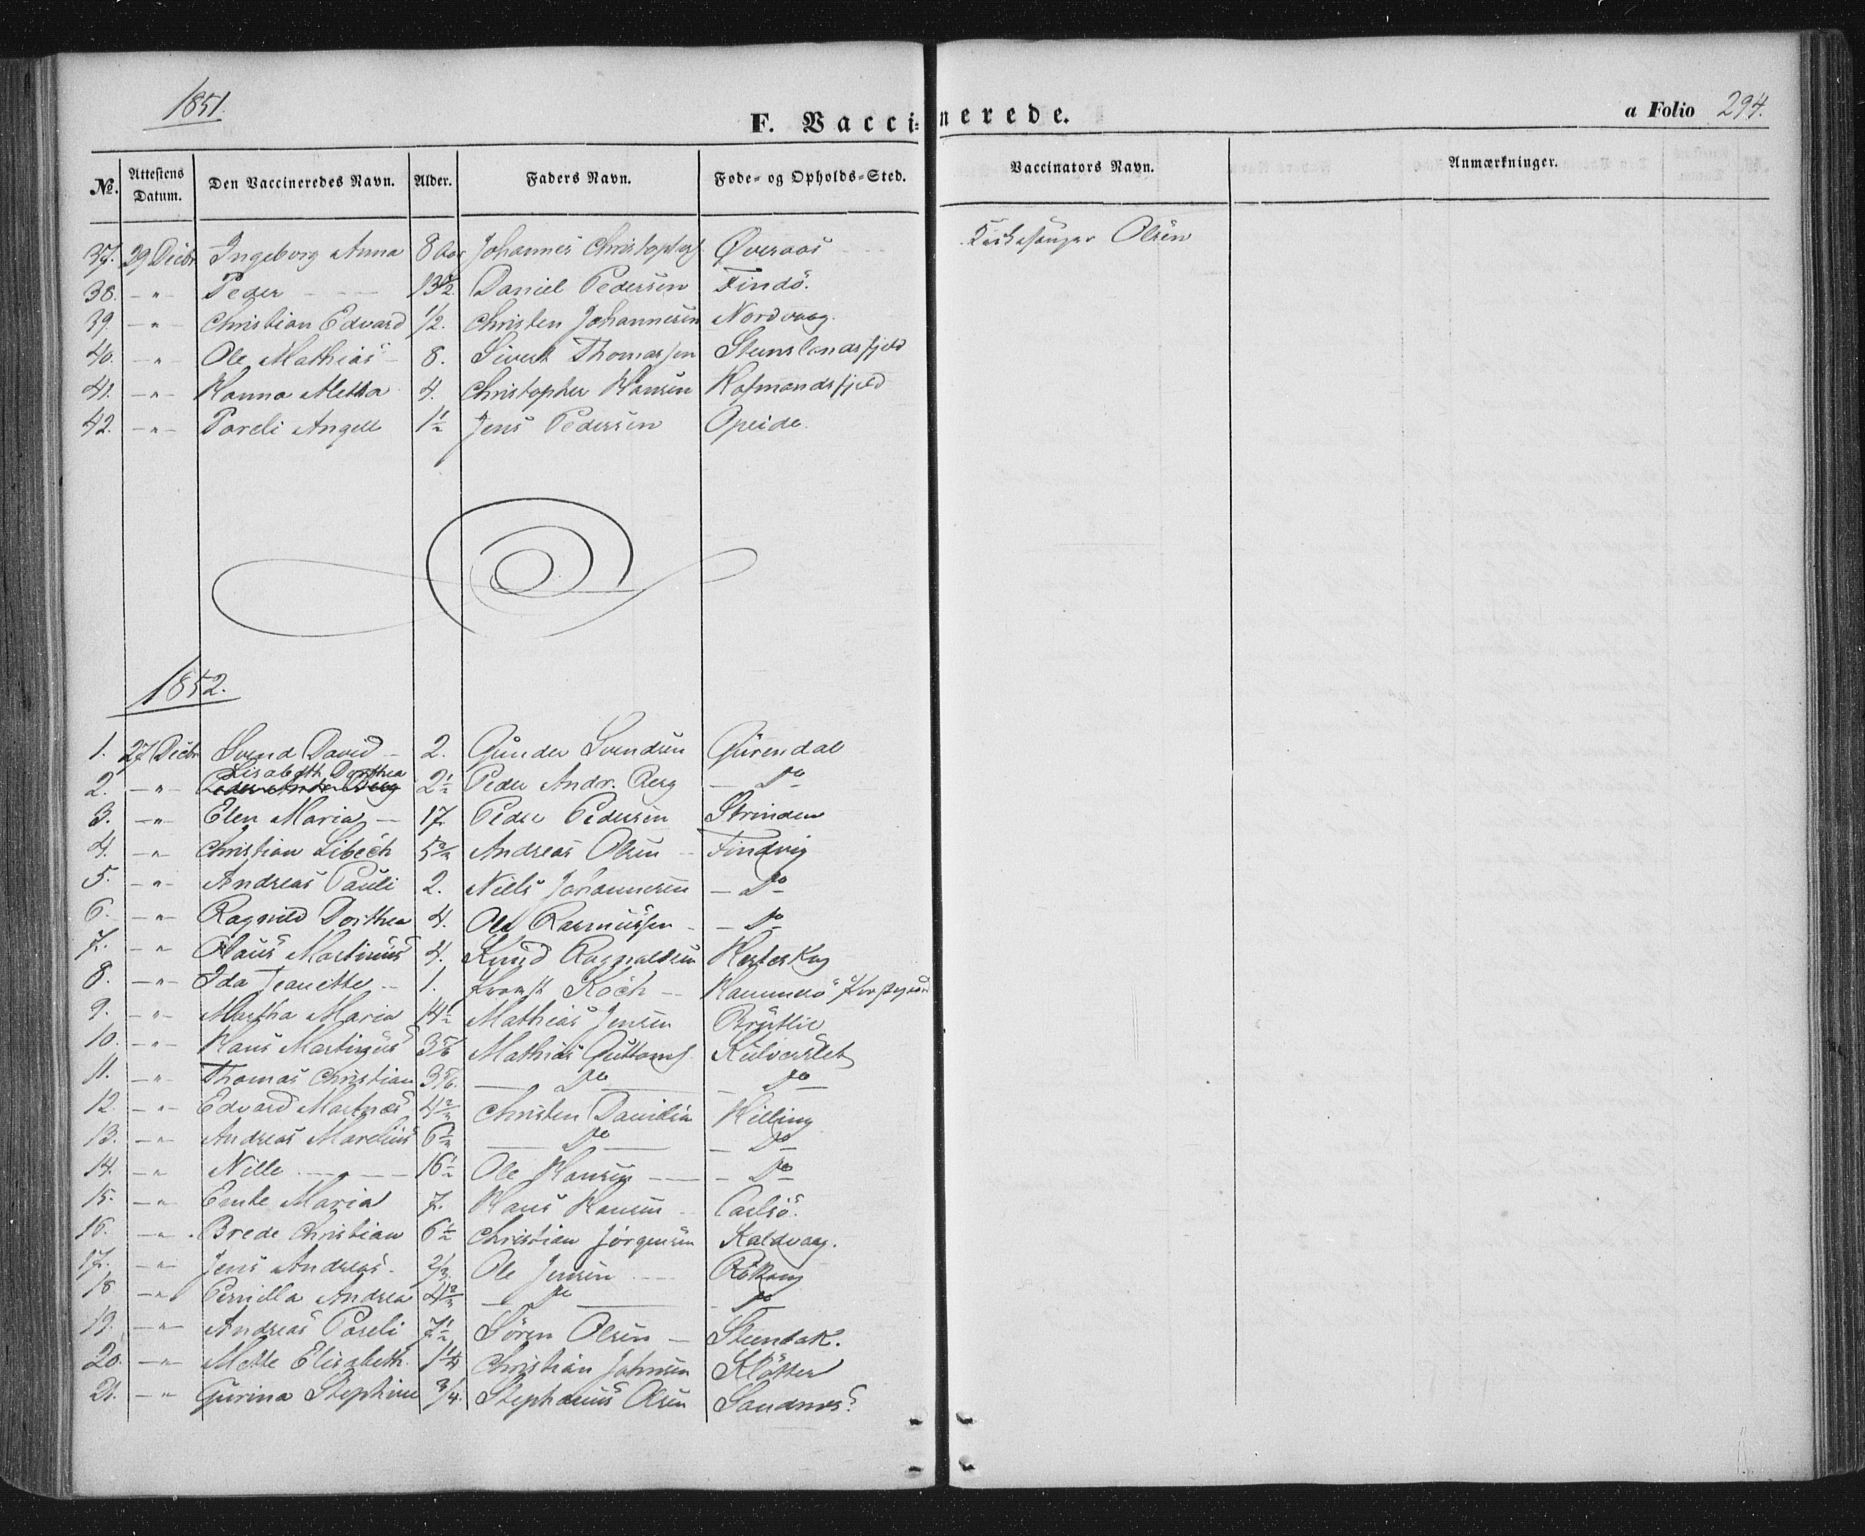 1851.
F. Vaccinerede.
a Folio 294.
No. Attestens Datum. Den Vaccineredes Navn. Alder. Faders Navn. Føde- og Opholds-Sted. Vaccinators Navn. Anmærkninger.
37. 29 Decbr Ingeborg Anna 8 Aar Johannes Christophers Øveraas Kirkesanger Olsen
38. -"- Peder Daniel Pedersen Findö.
39. -"- Christian Edvard 1/2. Christen Johannesen Nordvaag.
40. " Ole Mathias 8. Sivert Thomassen Stenslandsfjeld
41. -"- Hanna Metha 4. Christopher Hansen Hofmandsfjeld
42. -"- Pareli Angell 1½ Jens Pedersen Opeide.
1852.
1. 27 Decbr Svend David 2. Gunder Svendsen Gürendal
Lisabeth Dorthea
2. -"- Peder Andr. Berg 2½ Peder Andr. Berg Do
3. -"- Elen Maria 17. Peder Pedersen Strinden
4. -"- Christian Libech Andreas Olsen Findvig
5. -"- Andreas Pauli 2. Niels Johannesen Do
6. -"- Ragnild Dorthea 4. Ole Rasmussen Do
7. -"- Hans Martinus 4. Knud Ragnaldsen
8. -"- Ida Jeanette 1. Koch Hammerö
9. -"- Martha Maria 4½ Mathias Jensen
10. -"- Hans Martinus 3 5/6 Mathias Guttorms.
11. -"- Thomas Christian 3 5/6. Do Do
12. -"- Edvard 4 2/3 Christen Hilling
13. -"- Andreas Marelius 6½ Do Do
14. -"- Nille 16½ Ole Hansen Do
15. -"- Maria 7. Hans Hansen Carlsö.
16. -"- Brede Christian 6½ Christian Jørgensen Kaldvaag.
17. -"- Jens Andreas 2/3. Ole Jensen
18. -"- Pernilla Andrea 4 2/3 Do Do
19. -"- Andreas Pareli 7½ Søren Olsen
20. -"- Mette Elisabeth 1¼ Christian Johnsen
21. -"- Gurina Stephine 3/4. Stephanus Olsen Sandnes.